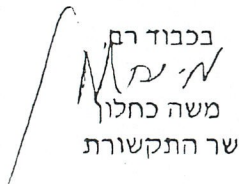 בכבוד רב,
משה כחלון
שר התקשורת